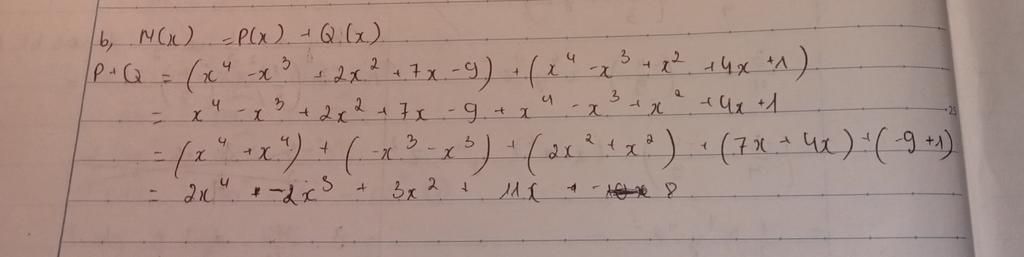 b, M(x) = P(x) + Q(x)
P+Q = (x⁴ - x³ + 2x² + 7x - 9) + (x⁴ - x³ + x² + 4x + 1)
= x⁴ - x³ + 2x² + 7x - 9 + x⁴ - x³ + x² + 4x + 1
= (x⁴ + x⁴) + (-x³ - x³) + (2x² + x²) + (7x + 4x) + (-9 + 1)
= 2x⁴ + -2x³ + 3x² + 11x + - 8